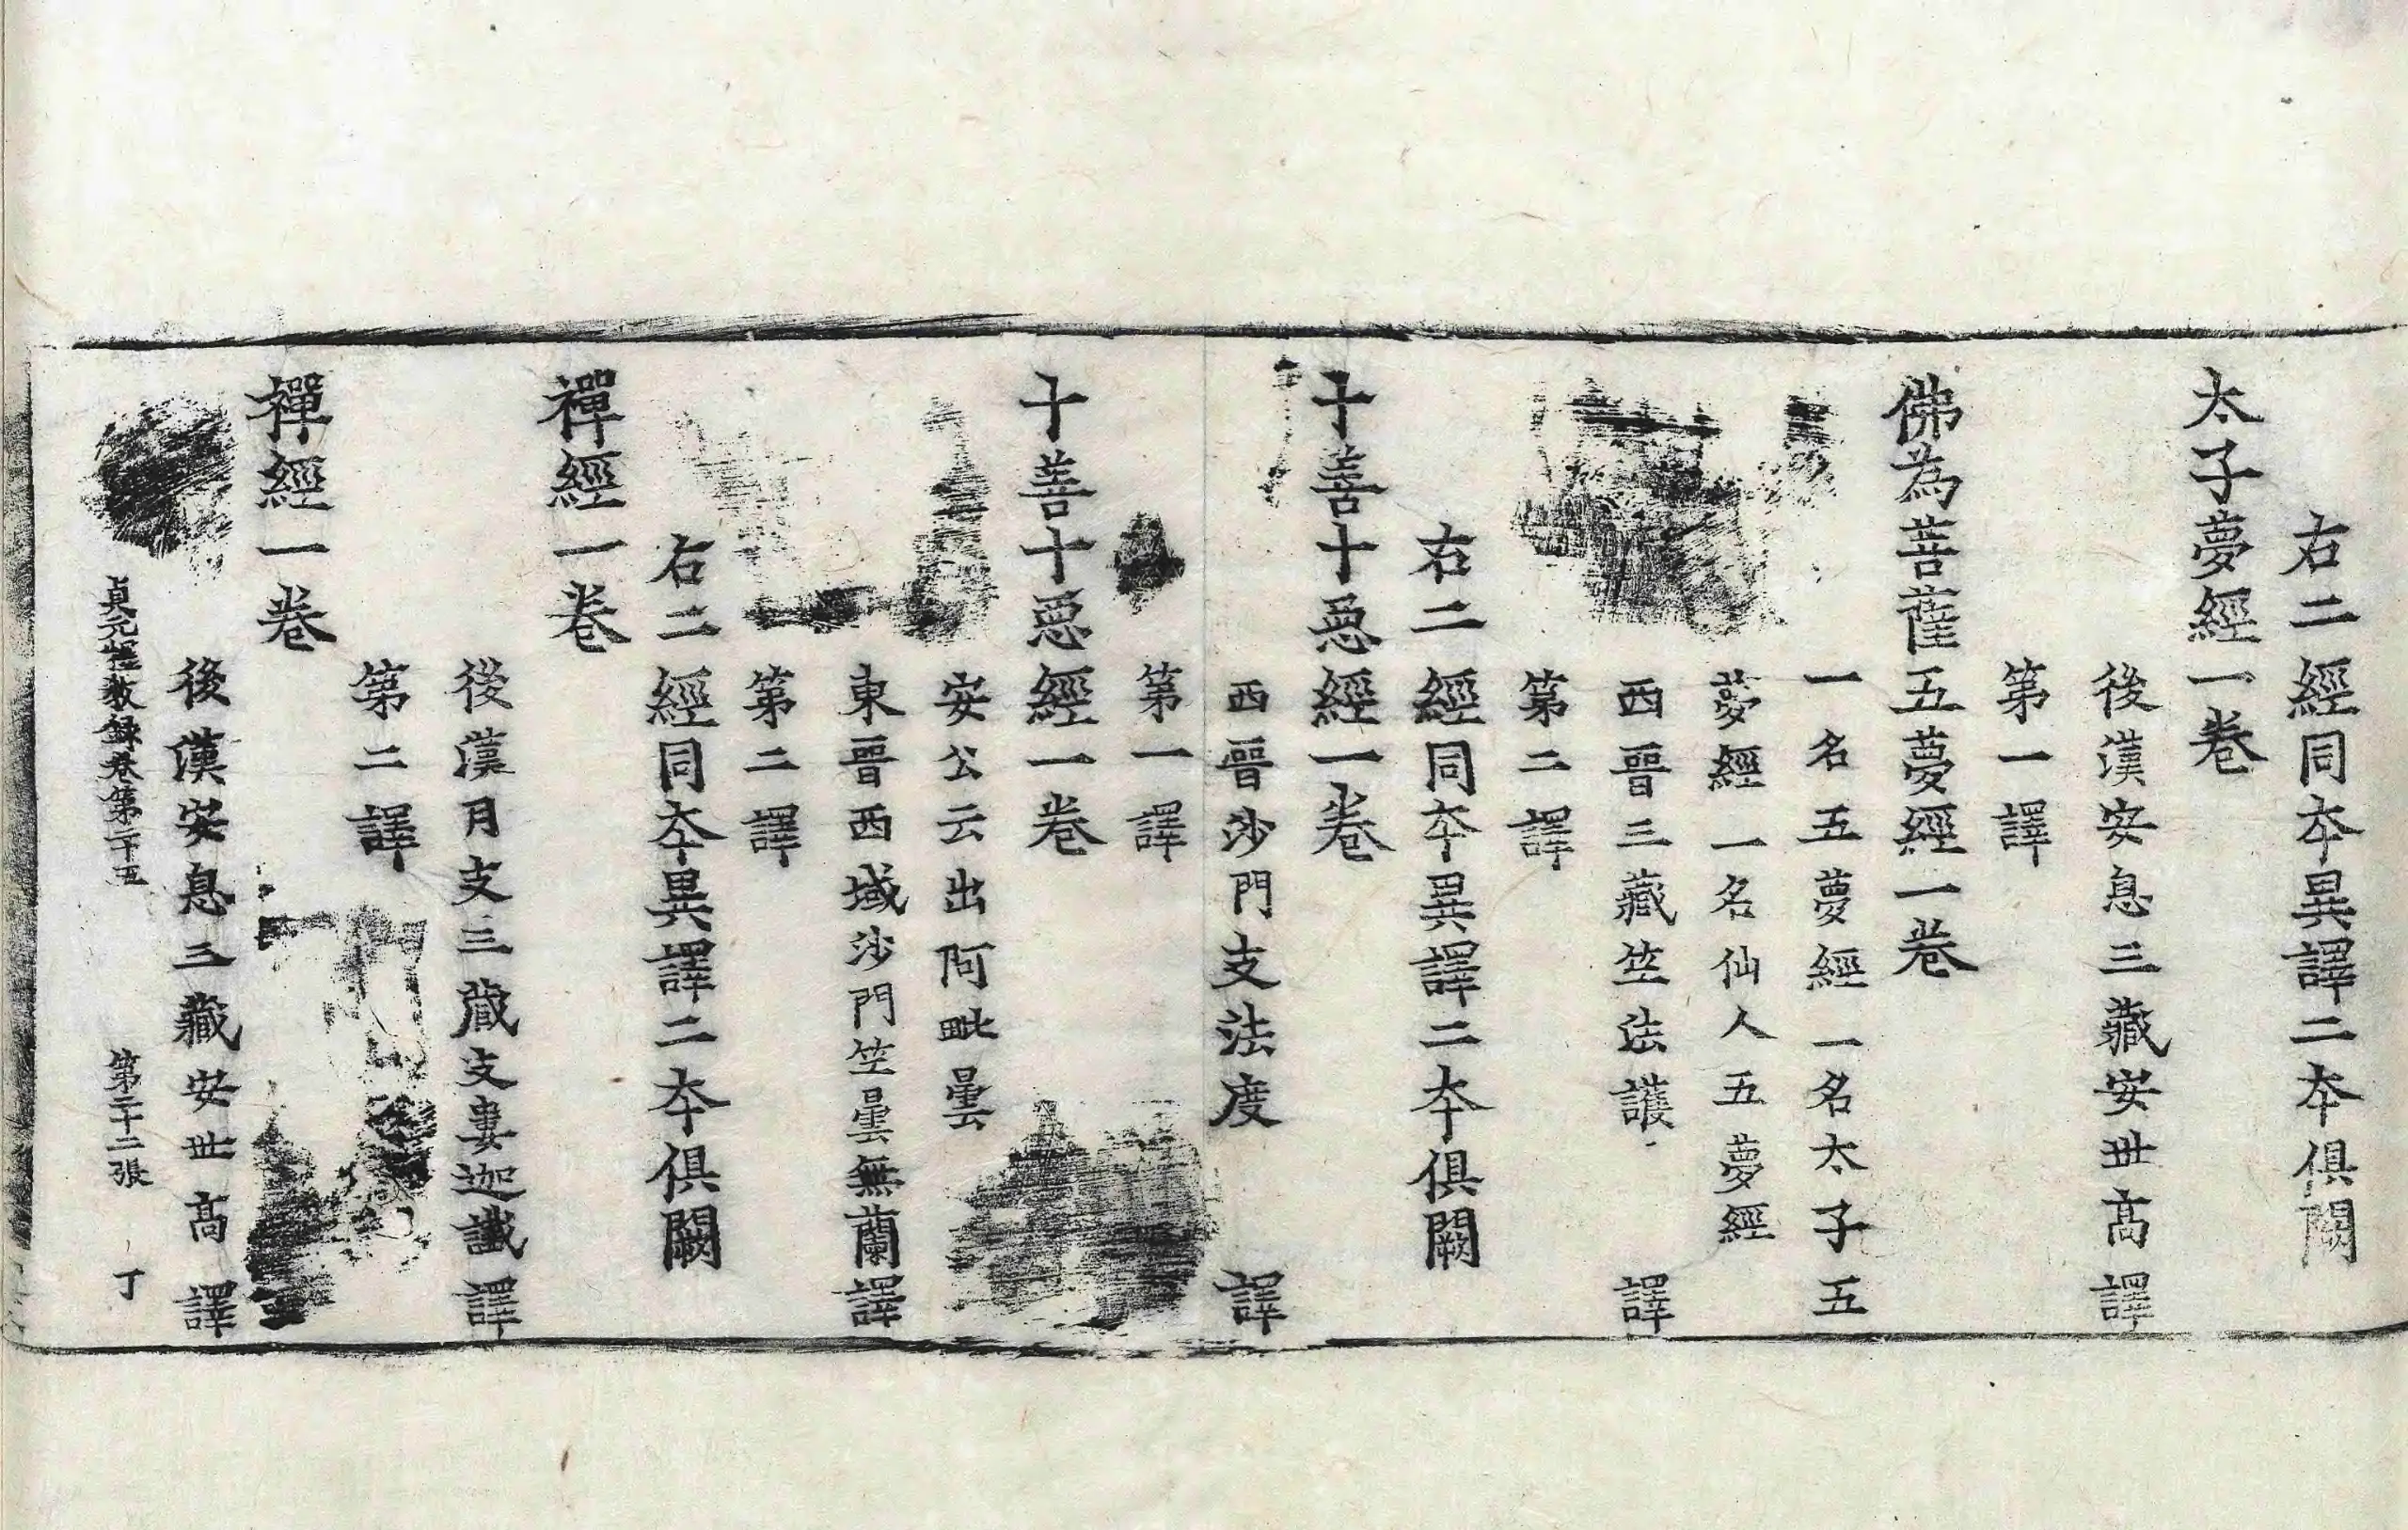 右二經同夲異譯二夲俱闕
太子夢經一卷
後漢安息三藏安世髙譯
第一譯
佛為菩薩五夢經一卷
一名五夢經一名太子五
夢經一名仙人五夢經
西晉三藏竺法護譯
第二譯
右二經同夲異譯二夲俱闕
十善十惡經一卷
西晉沙門支法度譯
第一譯
十善十惡經一卷
安公云出阿毗曇
東晉西域沙門竺曇無蘭譯
第二譯
右二經同夲異譯二夲俱闕
禪經一卷
後漢月支三藏支婁迦讖譯
第二譯
禪經一卷
後漢安息三藏安世髙譯
貞元釋教録卷第二十五 第二十二張 丁